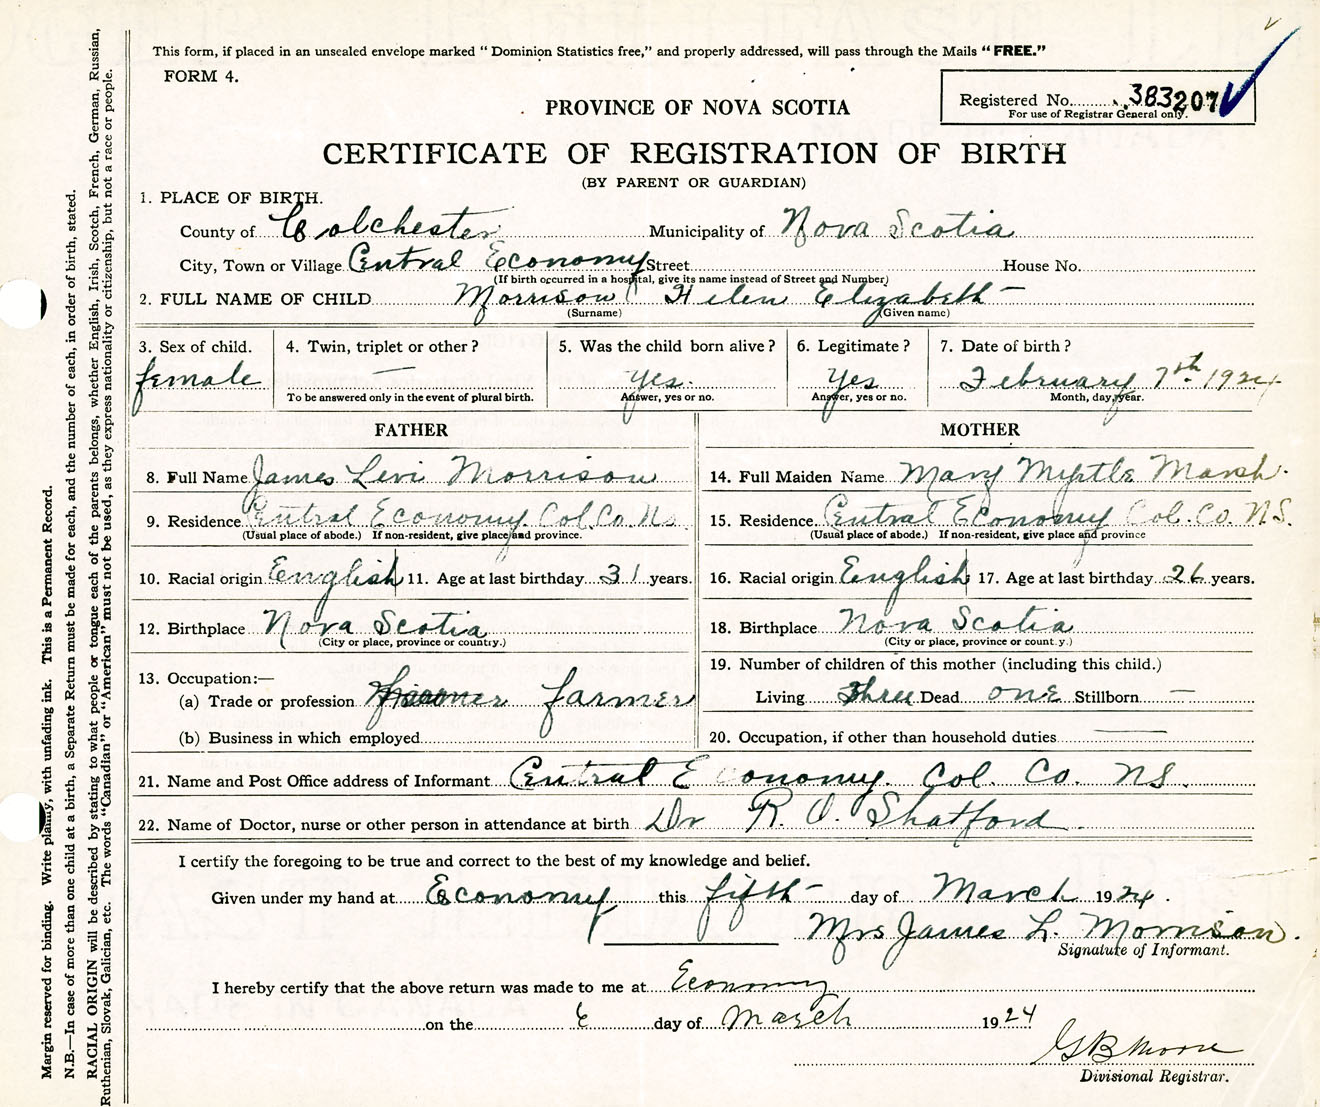 This form, if placed in an unsealed envelope marked “ Dominion Statistics free,” and properly addressed, will pass through the Mails “ FREE.”
FORM 4.
Registered No. 383207
For use of Registrar General only.
PROVINCE OF NOVA SCOTIA
CERTIFICATE OF REGISTRATION OF BIRTH
(BY PARENT OR GUARDIAN)
1. PLACE OF BIRTH.
County of Colchester Municipality of Nova Scotia
City, Town or Village Central Economy Street House No.
(If birth occurred in a hospital, give its name instead of Street and Number)
2. FULL NAME OF CHILD Morrison Helen Elizabeth
(Surname) (Given name)
3. Sex of child. 4. Twin, triplet or other? 5. Was the child born alive? 6. Legitimate? 7. Date of birth?
female — Yes. Yes February 7th 1924
To be answered only in the event of plural birth. Answer, yes or no. Answer, yes or no. Month, day, year.
FATHER MOTHER
8. Full Name James Levi Morrison 14. Full Maiden Name Mary Myrtle Marsh.
9. Residence Central Economy. Col. Co. N.S. 15. Residence Central Economy Col. Co. N.S.
(Usual place of abode.) If non-resident, give place and province. (Usual place of abode.) If non-resident, give place and province
10. Racial origin English 11. Age at last birthday 31 years. 16. Racial origin English 17. Age at last birthday 26 years.
12. Birthplace Nova Scotia 18. Birthplace Nova Scotia
(City or place, province or country.) (City or place, province or country.)
13. Occupation:— 19. Number of children of this mother (including this child.)
(a) Trade or profession farmer Living three Dead one Stillborn —
(b) Business in which employed 20. Occupation, if other than household duties —
21. Name and Post Office address of Informant Central Economy. Col. Co. NS.
22. Name of Doctor, nurse or other person in attendance at birth Dr R. O. Shatford
I certify the foregoing to be true and correct to the best of my knowledge and belief.
Given under my hand at Economy this fifth day of March 1924.
Mrs James L. Morrison.
Signature of Informant.
I hereby certify that the above return was made to me at Economy
on the day of March 1924
G B Moore
Divisional Registrar.
Margin reserved for binding. Write plainly, with unfading ink. This is a Permanent Record.
N.B.—In case of more than one child at a birth, a Separate Return must be made for each, and the number of each, in order of birth, stated.
RACIAL ORIGIN will be described by stating to what people or tongue each of the parents belongs, whether English, Irish, Scotch, French, German, Russian,
Ruthenian, Slovak, Galician, etc. The words “Canadian” or “American” must not be used, as they express nationality or citizenship, but not a race or people.